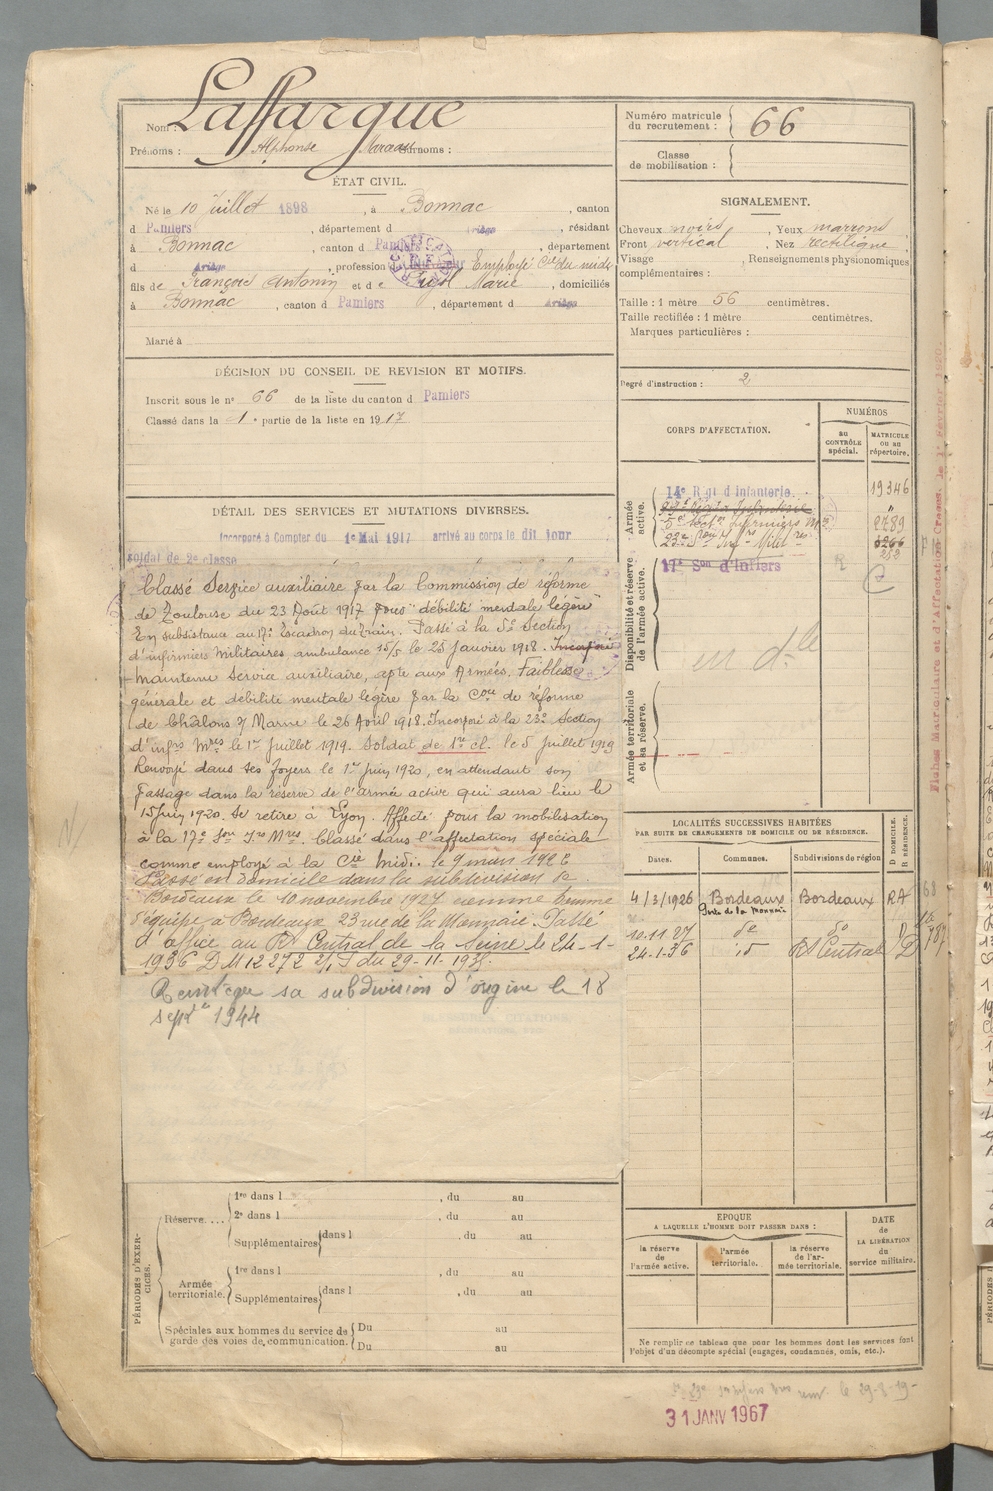 Nom : Laffargue
Prénoms : Alphonse Marceau Surnoms :
Numéro matricule du recrutement : 66
Classe de mobilisation :
ÉTAT CIVIL.
Né le 10 Juillet 1898, à Bonnac, canton
d Pamiers, département d Ariège, résidant
à Bonnac, canton d Pamiers, département
d Ariège, profession d Employé Cie du midi
fils de François Antonin et de Marie, domiciliés
à Bonnac, canton d Pamiers, département d Ariège
Marié à
SIGNALEMENT.
Cheveux noirs, Yeux marrons
Front vertical, Nez rectiligne
Visage, Renseignements physionomiques
complémentaires :
Taille : 1 mètre 56 centimètres.
Taille rectifiée : 1 mètre centimètres.
Marques particulières :
Degré d'instruction : 2
DÉCISION DU CONSEIL DE REVISION ET MOTIFS.
Inscrit sous le n° 66 de la liste du canton d Pamiers
Classé dans la 1e partie de la liste en 1917
DÉTAIL DES SERVICES ET MUTATIONS DIVERSES.
Incorporé à Compter du 1e Mai 1917 arrivé au corps le dit jour
soldat de 2e classe
Classé Service auxiliaire par la Commission de réforme
de Toulouse du 23 Août 1917 pour "débilité mentale légère"
En subsistance au 17e Escadron du Train. Passé à la 5e Section
d'infirmiers Militaires ambulance 15/5 le 25 janvier 1918. Incorporé
Maintenu Service auxiliaire, apte aux Armées. Faiblesse
générale et débilité mentale légère par la Con de réforme
de Châlons s/ Marne le 26 Avril 1918. Incorporé à la 23e Section
d'infrs Mres le 1er Juillet 1919. Soldat de 1re cl. le 5 Juillet 1919
Renvoyé dans ses foyers le 1er Juin 1920, en attendant son
passage dans la réserve de l'armée active qui aura lieu le
15 Juin 1920. Se retire à Lyon. Affecté pour la mobilisation
à la 17e Son Irs Mres. Classé dans l'affectation spéciale
comme employé à la Cie Midi. le 9 mars 1926
Passé en domicile dans la subdivision de
Bordeaux le 10 novembre 1927 comme homme
d'équipe à Bordeaux 23 rue de la Monnaie. Passé
d'office au Rt Central de la Seine le 24-1-
1936 DM 12272 2/1 T du 29-11-1935.
Réintègre sa subdivision d'origine le 18
septbre 1944
CORPS D'AFFECTATION.
NUMÉROS
au CONTRÔLE spécial.
MATRICULE ou au répertoire.
Armée active.
14e Rgt d'Infanterie. 19346
5e Sect. Infirmiers Mres 2789
23e Son Infrs Militres 282
Disponibilité et réserve de l'armée active.
17e Son d'Infiers
Armée territoriale et sa réserve.
LOCALITÉS SUCCESSIVES HABITÉES
PAR SUITE DE CHANGEMENTS DE DOMICILE OU DE RÉSIDENCE.
Dates. Communes. Subdivisions de région D DOMICILE. R RÉSIDENCE.
4/3/1926 Bordeaux Bordeaux RA
de la Monnaie
10.11.27 do do D
24-1-36 id Rt Central D
PÉRIODES D'EXERCICES.
Réserve.... 1re dans l , du au
2e dans l , du au
Supplémentaires dans l , du au
Armée territoriale. 1re dans l , du au
Supplémentaires dans l , du au
Spéciales aux hommes du service de garde des voies de communication. Du au
Du au
EPOQUE
A LAQUELLE L'HOMME DOIT PASSER DANS :
la réserve de l'armée active.
l'armée territoriale.
la réserve de l'armée territoriale.
DATE de LA LIBÉRATION du service militaire.
Ne remplir ce tableau que pour les hommes dont les services font
l'objet d'un décompte spécial (engagés, condamnés, omis, etc.).
31 JANV 1967